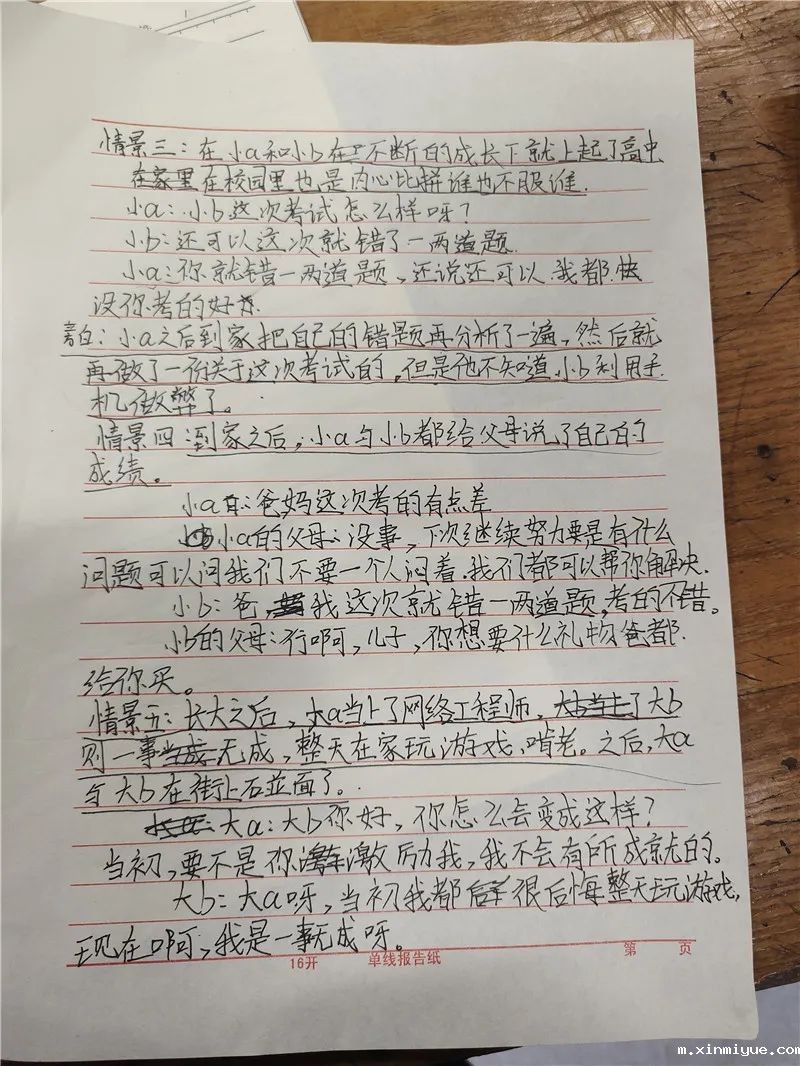 情景三：在小a和小b在不断的成长下就上起了高中
在家里在校园里也是内心比拼谁也不服谁.
小a：小b这次考试怎么样呀？
小b：还可以这次就错了一两道题.
小a：你就错一两道题，还说还可以.我都快
没你考的好.
旁白：小a之后到家把自己的错题再分析了一遍，然后就
再做了一份关于这次考试的，但是他不知道，小b利用手
机做弊了。
情景四：到家之后，小a与小b都给父母说了自己的
成绩。
小a：爸妈这次考的有点差
小a的父母：没事，下次继续努力要是有什么
问题可以问我们不要一个人闷着.我们都可以帮你解决.
小b：爸，我这次就错一两道题，考的不错。
小b的父母：行啊，儿子，你想要什么礼物爸都
给你买。
情景五：长大之后，大a当上了网络工程师，大b
则一事无成，整天在家玩游戏.啃老。之后，大a
与大b在街上石並面了。
大a：大b你好，你怎么会变成这样？
当初，要不是你激励我，我不会有所成就的。
大b：大a呀，当初我都很后悔整天玩游戏，
现在啊，我是一事无成呀。
16开 单线报告纸 第 页
m.xinmiyue.com